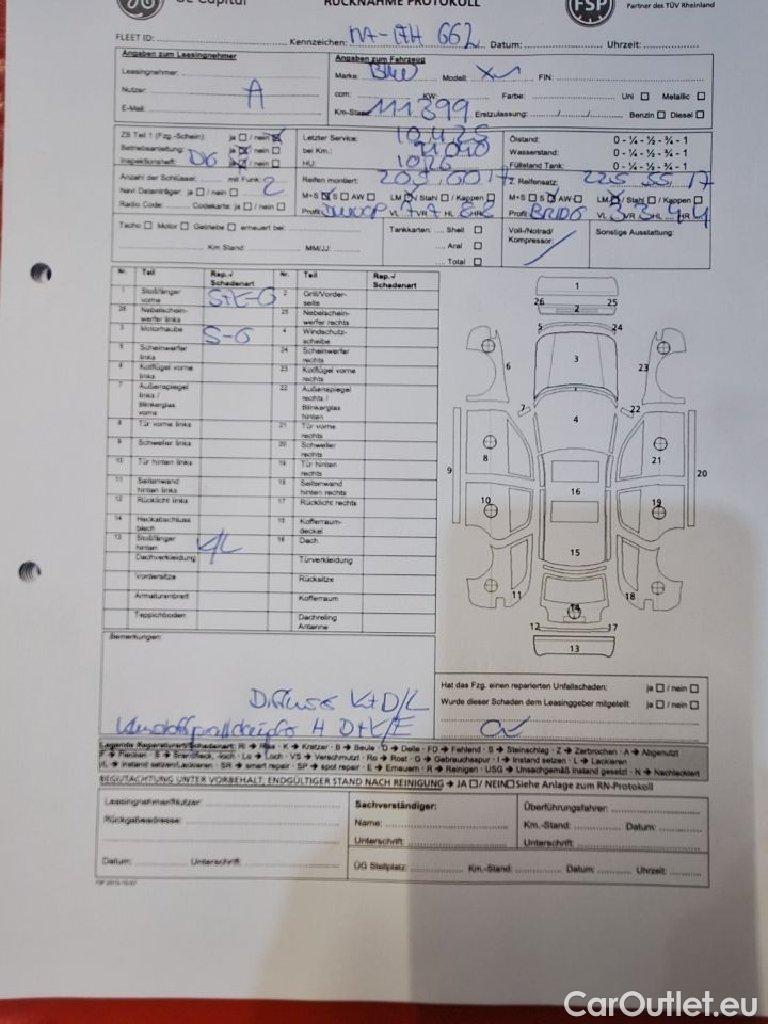 GE Capital
RÜCKNAHME PROTOKOLL
FSP
Partner des TÜV Rheinland
FLEET ID:
Kennzeichen: 662 Datum: Uhrzeit:
Angaben zum Leasingnehmer
Leasingnehmer:
Nutzer: A
E-Mail:
Angaben zum Fahrzeug
Marke: BMW Modell: FIN:
ccm: KW: Farbe: Uni Metallic
Km-Stand: 111399 Erstzulassung: / / Benzin Diesel
ZB Teil 1 (Fzg.-Schein): ja / nein
Betriebsanleitung: ja / nein
Inspektionsheft: ja / nein
Letzter Service:
bei Km.:
HU: 10/26
Ölstand: 0 - ¼ - ½ - ¾ - 1
Wasserstand: 0 - ¼ - ½ - ¾ - 1
Füllstand Tank: 0 - ¼ - ½ - ¾ - 1
Anzahl der Schlüssel: mit Funk: 2
Navi Datenträger ja / nein
Radio Code: Codekarte: ja / nein
Reifen montiert: 205.60.17
M+S S AW LM / Stahl / Kappen
Profil: VL VR HL HR
2. Reifensatz: 225 55 17
M+S S AW LM / Stahl / Kappen
Profil: BRIDG VL VR HL HR
Tacho Motor Getriebe erneuert bei:
Km Stand: MM/JJ:
Tankkarten: Shell
Aral
Total
Voll-/Notrad/
Kompressor:
Sonstige Ausstattung:
Nr. Teil Rep.-/ Schadenart Nr. Teil Rep.-/ Schadenart
1 Stoßfänger vorne 2 Grill/Vorderseite
26 Nebelscheinwerfer links 25 Nebelscheinwerfer rechts
3 Motorhaube S-G 4 Windschutzscheibe
5 Scheinwerfer links 24 Scheinwerfer rechts
6 Kotflügel vorne links 23 Kotflügel vorne rechts
7 Außenspiegel links / Blinkerglas vorne 22 Außenspiegel rechts / Blinkerglas hinten
8 Tür vorne links 21 Tür vorne rechts
9 Schweller links 20 Schweller rechts
10 Tür hinten links 19 Tür hinten rechts
11 Seitenwand hinten links 18 Seitenwand hinten rechts
12 Rücklicht links 17 Rücklicht rechts
14 Heckabschlussblech 15 Kofferraumdeckel
13 Stoßfänger hinten K/L 16 Dach
Dachverkleidung Türverkleidung
Vordersitze Rücksitze
Armaturenbrett Kofferraum
Teppichboden Dachreling Antenne
1
26 25
2
5 24
3
6 23
7 22
4
8 21
9 20
16
10 19
15
11 18
14
12 17
13
Bemerkungen:
Diffusor K+D/L
Hat das Fzg. einen reparierten Unfallschaden: ja / nein
Wurde dieser Schaden dem Leasinggeber mitgeteilt: ja / nein
Legende Reparaturart/Schadenart: R → Riss · K → Kratzer · B → Beule · D → Delle · FD → Fehlend · S → Steinschlag · Z → Zerbrochen · A → Abgenutzt
VS → Verschmutzt · Ro → Rost · G → Gebrauchsspur · I → Instand setzen · L → Lackieren
SR → smart repair · SP → spot repair · E → Erneuern · R → Reinigen · USG → Unsachgemäß instand gesetzt · N → Nachlackiert
BEGUTACHTUNG UNTER VORBEHALT, ENDGÜLTIGER STAND NACH REINIGUNG → JA / NEIN Siehe Anlage zum RN-Protokoll
Leasingnehmer/Nutzer:
Rückgabeadresse:
Datum: Unterschrift:
Sachverständiger:
Name:
Unterschrift:
Überführungsfahrer:
Km.-Stand: Datum:
Unterschrift:
ÜG Stellplatz: Km.-Stand: Datum: Uhrzeit:
CarOutlet.eu